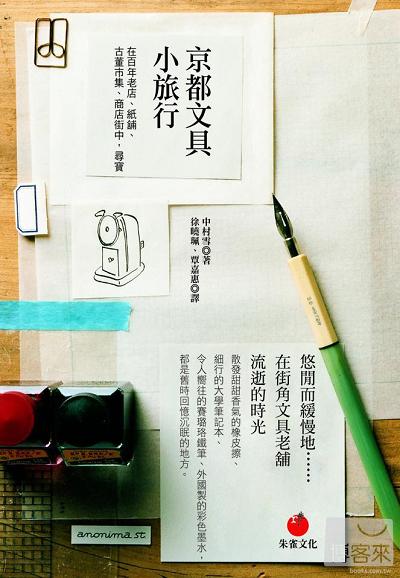 京都文具
小旅行
在百年老店、紙舖、
古董市集、商店街中，尋寶
中村雪◎著
徐曉珮、覃嘉惠◎譯
悠閒而緩慢地……
在街角文具老舖
流逝的時光
散發甜甜香氣的橡皮擦、
細行的大學筆記本、
令人嚮往的賽璐珞鐵筆、外國製的彩色墨水，
都是舊時回憶沉眠的地方。
朱雀文化
anonima st.
博客來
books.com.tw